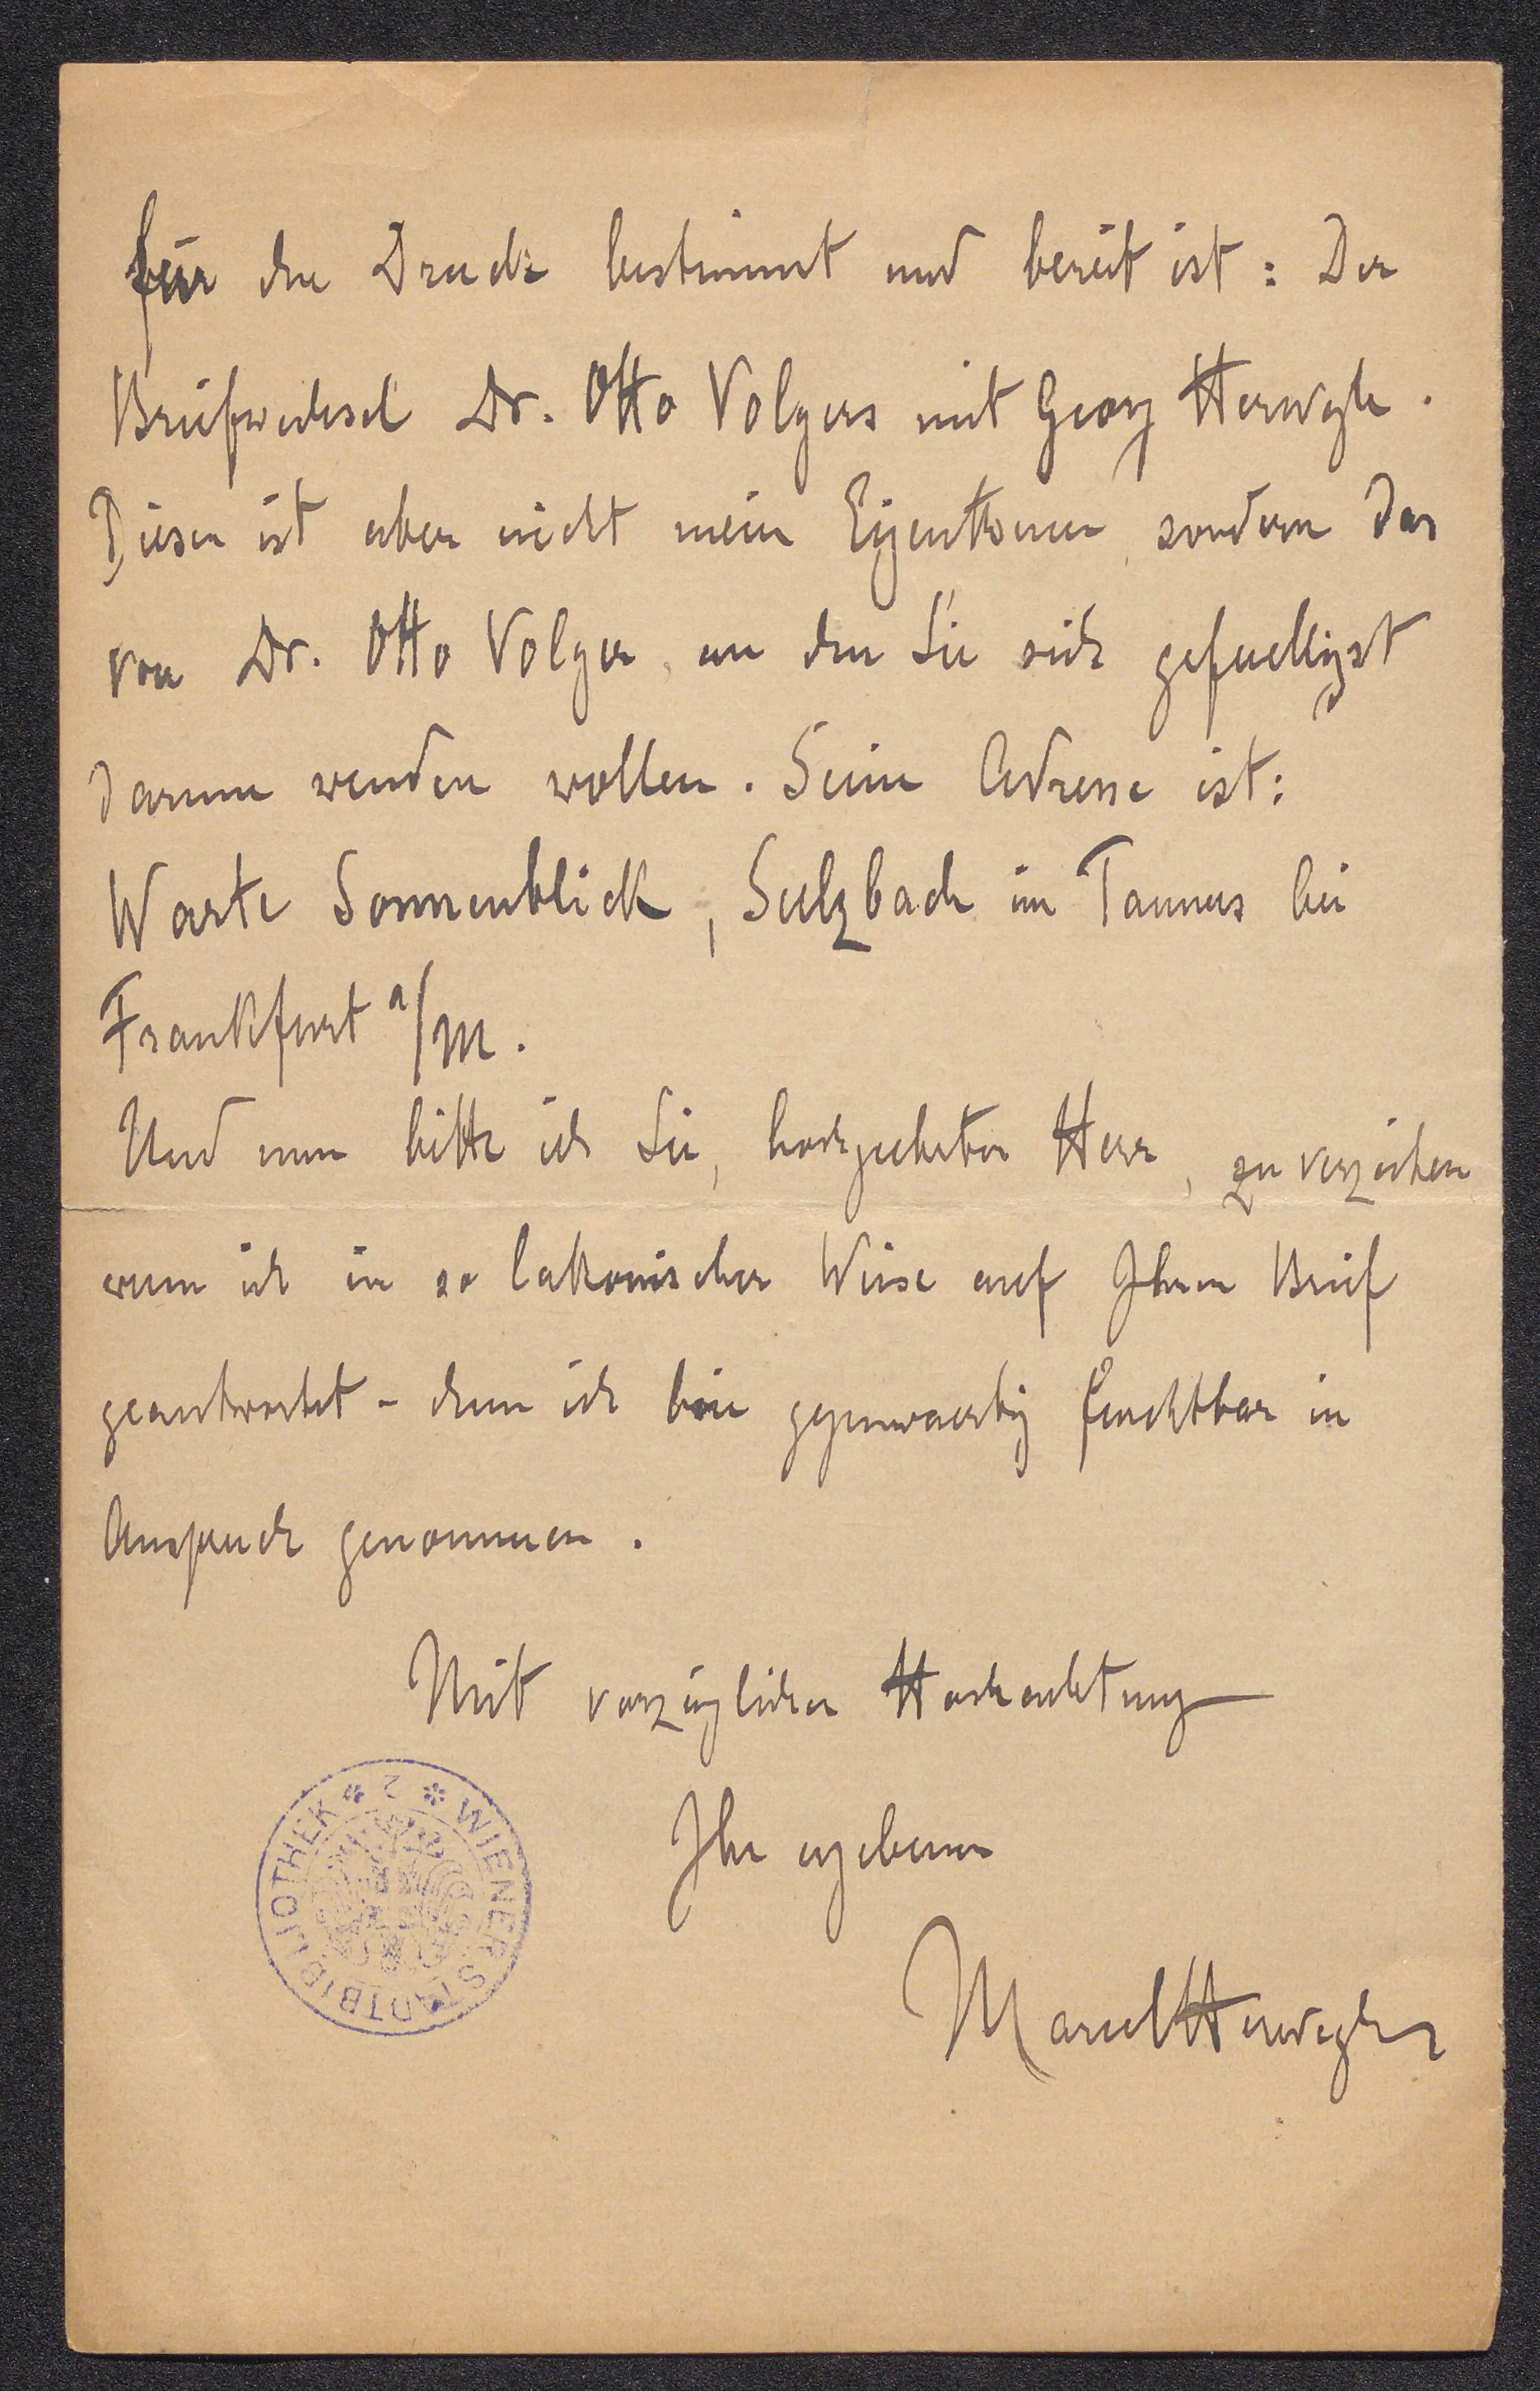 für den Druck bestimmt und bereit ist: Der
Briefwechsel Dr. Otto Volgers mit Georg Herwegh.
Dieser ist aber nicht mein Eigenthum, sondern das
von Dr. Otto Volger, an den Sie sich gefaelligst
darum wenden wollen. Seine Adresse ist:
Warte Sonnenblick, Sulzbach im Taunus bei
Frankfurt a/M.
Und nun bitte ich Sie, hochgeehrter Herr, zu verzeihen
wenn ich in so lakonischer Weise auf Ihren Brief
geantwortet - denn ich bin gegenwaertig furchtbar in
Anspruch genommen.
Mit vorzüglicher Hochachtung
Ihr ergebener
Marcel Herwegh
* WIENER STADTBIBLIOTHEK * 2